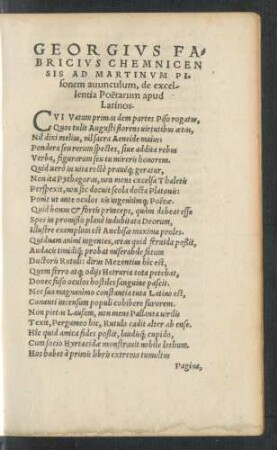 GEORGIVS FA-
BRICIVS CHEMNICEN
SIS AD MARTINVM PI-
sonem auunculum, de excel-
lentia Poëtarum apud
Latinos.
CVI Vatum primas dem partes Piso rogatur,
Quos tulit Augusti florens uirtutibus ætas,
Nil dixi melius, nil sacra Aeneide maius:
Pondera seu rerum spectes, siue addita rebus
Verba, figurarum seu tu mireris honorem.
Quid uerò in uita recte praueq; geratur,
Non ita Pythagoras, non mens excelsa Thaletis
Perspexit, non sic docuit scola docta Platonis:
Ponit ut ante oculos uis ingenitumq; Poëtæ.
Quid bonus & fortis princeps, quòm debeat esse
Spes in promissis planè indubitata Deorum,
Illustre exemplum est Anchisæ maxima proles.
Quidnam animi ingentes, ætas quid feruida possit,
Audacis timidiq; probat miserabile fatum
Ductoris Rutuli: dirus Mezentius hic est,
Quem ferro atq; odijs Hetruria tota petebat,
Donec fuso oculos hostiles sanguine pascit.
Nec sua magnanimo constantia tuta Latino est,
Conanti incensum populi cohibere furorem.
Non pietas Lausum, non mens Pallanta uirilis
Texit, Pergameo hic, Rutulo cadit alter ab ense.
Hic quid amica fides possit, laudisq; cupido,
Cum socio Hyrtacidæ monstrauit nobile lethum.
Hos habet à primis libris extrema tumultus
Pagina,